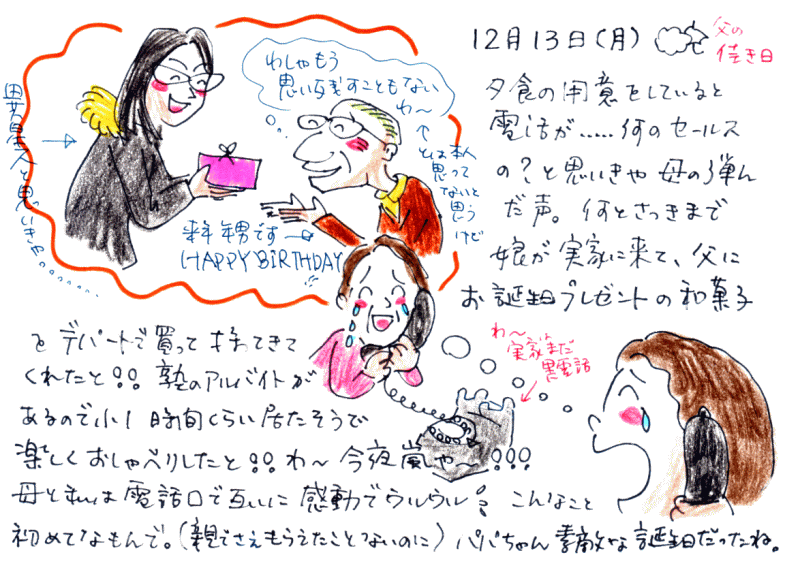 12月13日(月)
父の
佳き日
わしゃもう
思い残すこともない
わ〜
とは本人
思って
ないと
思う
けど
異星人と思いきや………
来年年男です→
HAPPY BIRTHDAY!!
夕食の用意をしていると
電話が……何のセールス
の？と思いきや母の弾ん
だ声。何とさっきまで
娘が実家に来て、父に
お誕生日プレゼントの和菓子
をデパートで買って持ってきて
くれたと!!塾のアルバイトが
あるので小1時間くらい居たそうで
楽しくおしゃべりしたと!!わ〜今夜嵐や〜!!!
母と私は電話口で互いに感動でウルウル。こんなこと
初めてなもんで。(親でさえもらえたことないのに)パパちゃん素敵な誕生日だったね。
わ〜
実家はまだ
黒電話